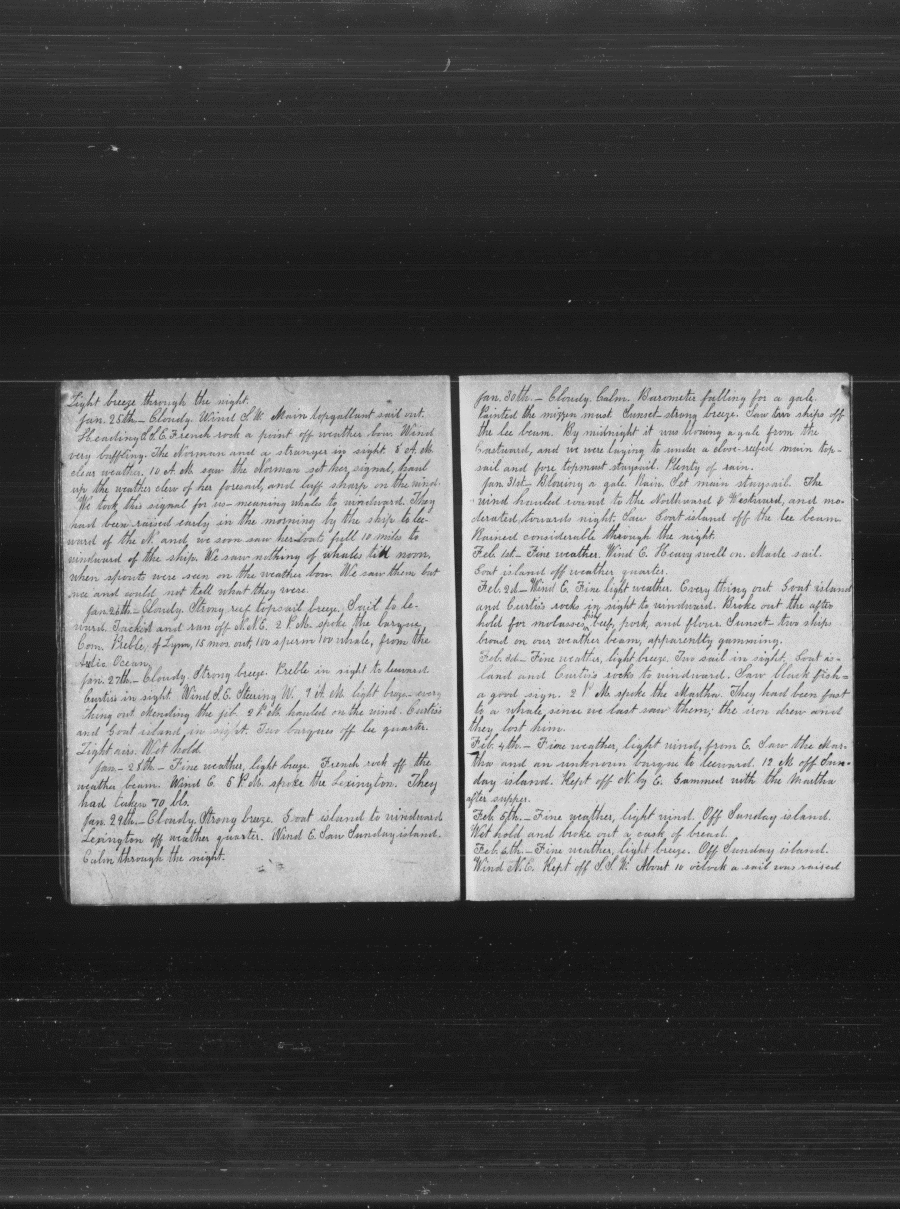 Light breeze through the night.
Jan. 25th.- Cloudy. Wind S.W. Main topgallant sail out.
Heading S.S.E. French rock a point off weather bow. Wind
very baffling. The Norman and a stranger in sight. 8 A.M.
clear weather. 10 A.M. saw the Norman set her signal, haul
up the weather clew of her foresail, and luff sharp on the wind.
We took this signal for us- meaning whales to windward. They
had been raised early in the morning by the ship to lee-
ward of the N. and, we soon saw her boats full 10 miles to
windward of the ship. We saw nothing of whales till noon,
when spouts were seen on the weather bow. We saw them but
once and could not tell what they were.
Jan. 26th.- Cloudy. Strong reef topsail breeze. Sail to le-
ward. Tacked and run off N.N.E. 2 P.M. spoke the barque
Com. Preble, of Lynn, 18 mos. out, 100 sperm 700 whale, from the
Artic Ocean.
Jan. 27th.- Cloudy. Strong breeze. Preble in sight to leeward.
Curtis's in sight. Wind S.E. Steering W. 9 A.M. light breeze- every
thing out. Mending the jib. 2 P.M. hauled on the wind. Curtis's
and Goat island in sight. Two barques off lee quarter.
Light airs. Wet hold.
Jan- 28th- Fine weather, light breeze. French rock off the
weather beam. Wind E. 5 P.M. spoke the Lexington. They
had taken 70 bls.
Jan. 29th.- Cloudy. Strong breeze. Goat island to windward
Lexington off weather quarter. Wind E. Saw Sunday island.
Calm through the night.
Jan. 30th.- Cloudy. Calm. Barometer falling for a gale.
Painted the mizzen mast. Sunset- strong breeze. Saw two ships off
the lee beam. By midnight it was blowing a gale from the
Eastward, and we were laying to under a close-reefed main top-
sail and fore topmast staysail. Plenty of rain.
Jan 31st- Blowing a gale. Rain. Set main staysail. The
wind hauled round to the Northward & Westward, and mo-
derated towards night. Saw Goat island off the lee beam.
Rained considerable through the night.
Feb. 1st- Fine weather. Wind E. Heavy swell on. Made sail.
Goat island off weather quarter.
Feb. 2d- Wind E. Fine light weather. Every thing out. Goat island
and Curtis's rocks in sight to windward. Broke out the after
hold for molasses, beef, pork, and flour. Sunset- two ships
broad on our weather beam, apparently gamming.
Feb. 3d- Fine weather, light breeze. Two sail in sight. Goat is-
land and Curtis's rocks to windward. Saw black fish-
a good sign. 2 P.M. spoke the Martha. They had been fast
to a whale since we last saw them; the iron drew and
they lost him.
Feb. 4th- Fine weather, light wind, from E. Saw the Mar-
tha and an unknown barque to leeward. 12 M. off Sun-
day island. Kept off N. by E. Gammed with the Martha
after supper.
Feb. 5th.- Fine weather, light wind. Off Sunday island.
Wet hold and broke out a cask of bread.
Feb. 6th.- Fine weather, light breeze. Off Sunday island.
Wind N.E. Kept off S.S.W. About 10 o'clock a sail was raised